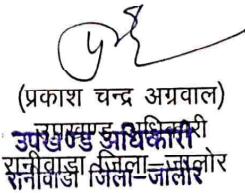 (प्रकाश चन्द्र अग्रवाल)
उपखण्ड अधिकारी
उपखण्ड अधिकारी
रानीवाडा जिला–जालोर
रानीवाडा जिला-जालोर